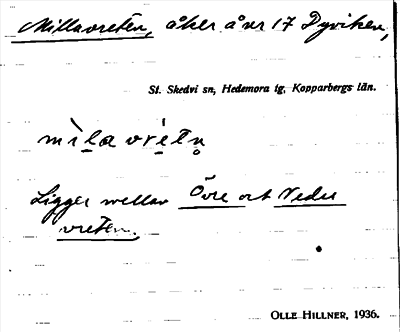 Millavreten, åker å nr 17 Dyviken,
St. Skedvi sn, Hedemora tg, Kopparbergs län.
mìlavrétn̥
Ligger mellan Övre och Neder
vreten.
OLLE HILLNER, 1936.